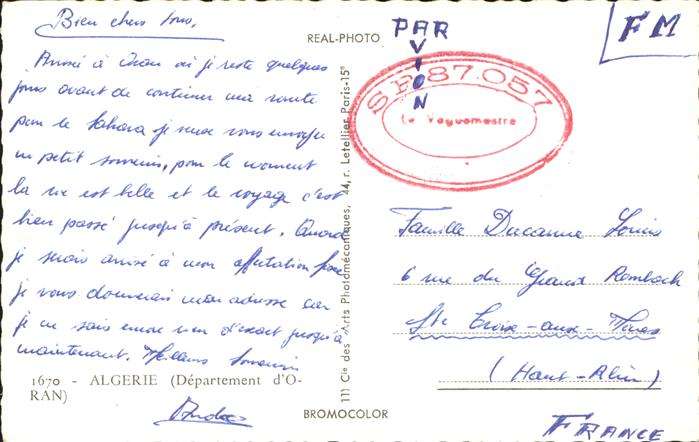 Bien chers tous.
Arrivé à Oran où je reste quelques
jours avant de continuer ma route
pour le Sahara je veux vous envoyer
un petit souvenir, pour le moment
la vie est belle et le voyage c'est
bien passé jusqu'à présent. Quand
je serais arrivé à mon affectation
je vous donnerais mon adresse car
je ne sais encore rien d'exact jusqu'à
maintenant. Meilleurs souvenirs
1670 - ALGERIE (Département d'O-
RAN)
REAL-PHOTO
11) Cie des Arts Photomécaniques, 44, r. Letellier Paris-15e
BROMOCOLOR
PAR
AVION
FM
SP 87.057
Le Vaguemestre
Famille Ducanne Louis
6 rue du Grand Rombach
Ste Croix-aux-Mines
(Haut-Rhin)
FRANCE